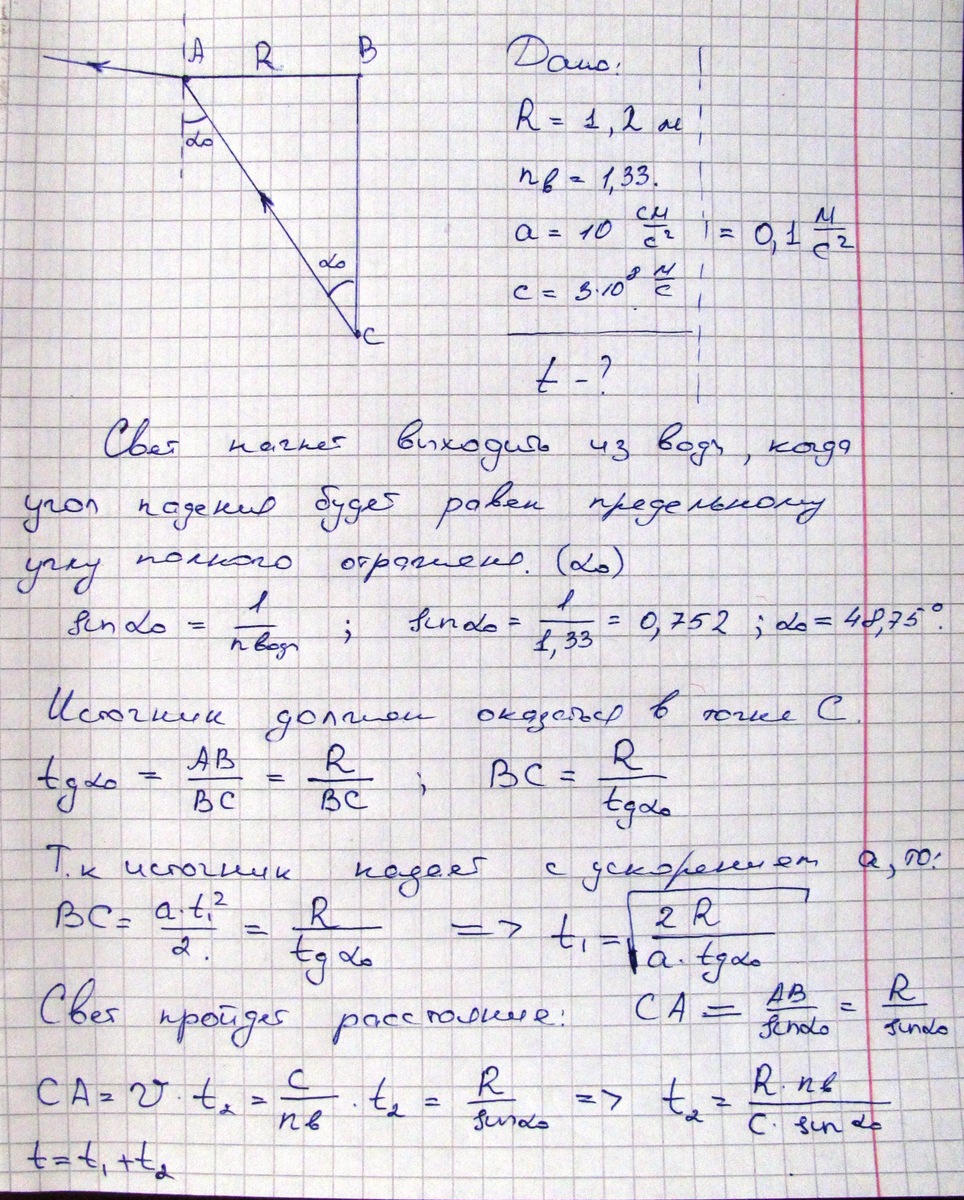 A R B
α₀
α₀
C
Дано:
R = 1,2 м
nв = 1,33.
a = 10 см/с² = 0,1 м/с²
c = 3·10⁸ м/с
t - ?
Свет начнет выходить из воды, когда
угол падения будет равен предельному
углу полного отражения. (α₀)
sin α₀ = 1/nводы ; sin α₀ = 1/1,33 = 0,752 ; α₀ = 48,75°.
Источник должен оказаться в точке C.
tg α₀ = AB/BC = R/BC ; BC = R/tg α₀
Т.к источник падает с ускорением a, то:
BC = a·t₁²/2. = R/tg α₀ => t₁ = √(2R/(a·tg α₀))
Свет пройдет расстояние: CA = AB/sin α₀ = R/sin α₀
CA = v·t₂ = c/nв · t₂ = R/sin α₀ => t₂ = R·nв/(c·sin α₀)
t = t₁ + t₂